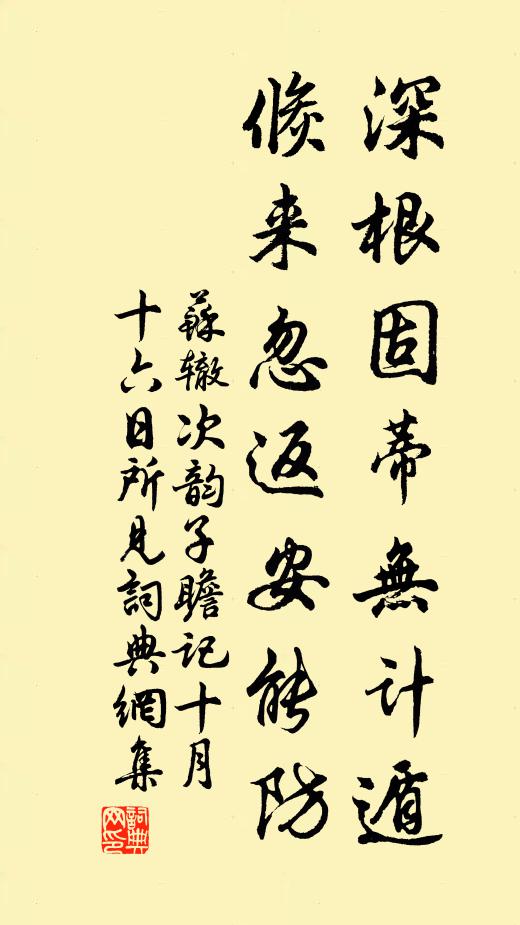 深根固蒂無計遁
倏来忽返安能防
蘇辙次韵子瞻记十月
十六日所见詞典網集
詞典網印